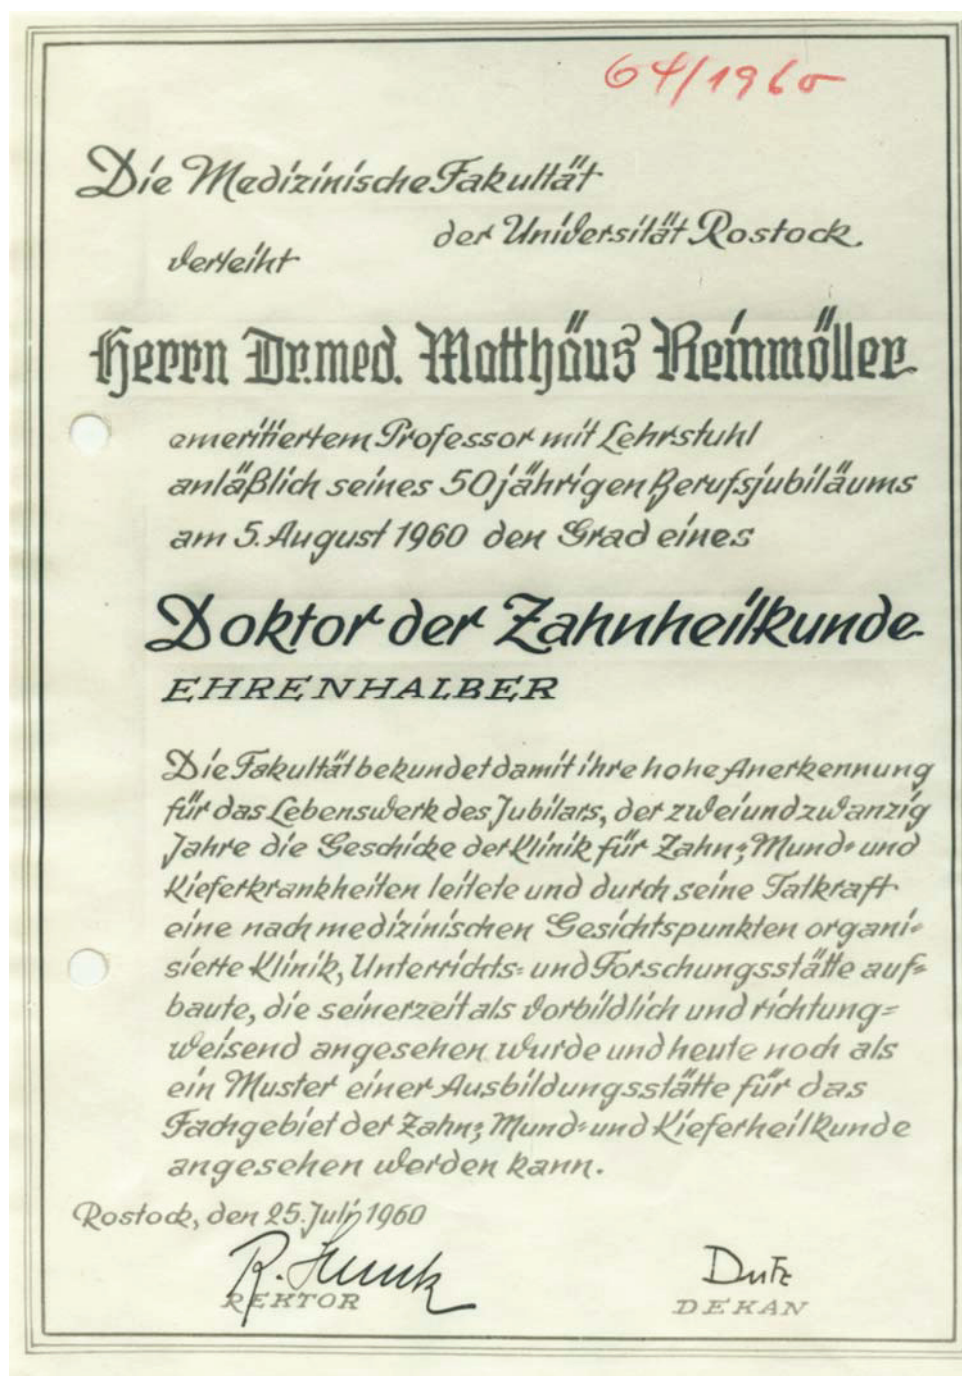 64/1960
Die Medizinische Fakultät
der Universität Rostock
verleiht
Herrn Dr. med. Matthäus Reinmöller
emeritiertem Professor mit Lehrstuhl
anläßlich seines 50jährigen Berufsjubiläums
am 5. August 1960 den Grad eines
Doktor der Zahnheilkunde
EHRENHALBER
Die Fakultät bekundet damit ihre hohe Anerkennung
für das Lebenswerk des Jubilars, der zweiundzwanzig
Jahre die Geschicke der Klinik für Zahn-, Mund- und
Kieferkrankheiten leitete und durch seine Tatkraft
eine nach medizinischen Gesichtspunkten organi-
sierte Klinik, Unterrichts- und Forschungsstätte auf-
baute, die seinerzeit als vorbildlich und richtung-
weisend angesehen wurde und heute noch als
ein Muster einer Ausbildungsstätte für das
Fachgebiet der Zahn-, Mund- und Kieferheilkunde
angesehen werden kann.
Rostock, den 25. Juli 1960
R.
Dutz
REKTOR
DEKAN